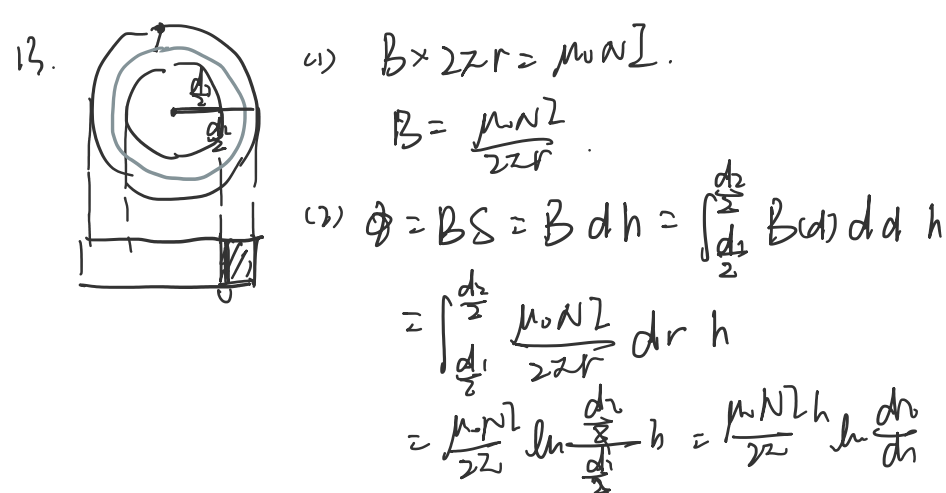 13.
d₂/2
d₁/2
(1) B × 2πr = μ₀NI.
B = μ₀NI / 2πr .
(2) Φ = BS = B d h = ∫_{d₁/2}^{d₂/2} B(d) d d h
= ∫_{d₁/2}^{d₂/2} μ₀NI / 2πr dr h
= μ₀NI / 2π ln (d₂/2) / (d₁/2) h = μ₀NIh / 2π ln d₂/d₁